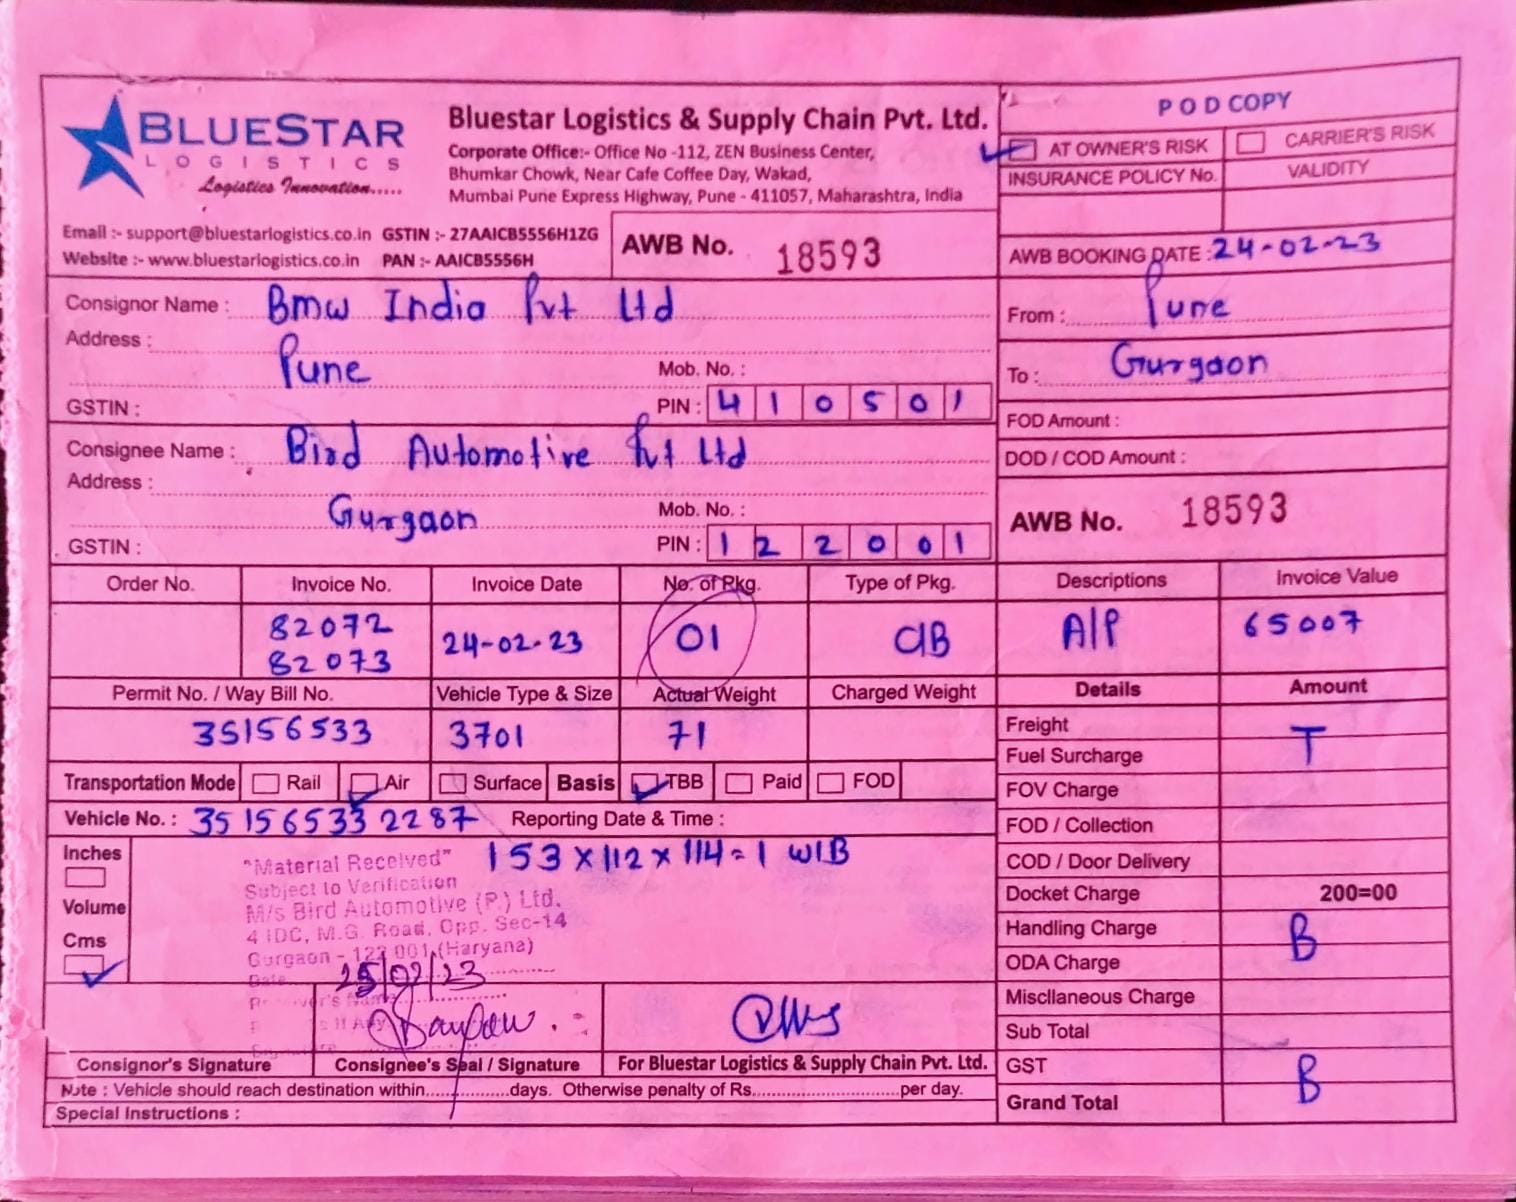 BLUESTAR
LOGISTICS
Logistics Innovation.....
Bluestar Logistics & Supply Chain Pvt. Ltd.
Corporate Office:- Office No -112, ZEN Business Center,
Bhumkar Chowk, Near Cafe Coffee Day, Wakad,
Mumbai Pune Express Highway, Pune - 411057, Maharashtra, India
Email :- support@bluestarlogistics.co.in GSTIN :- 27AAICB5556H1ZG
Website :- www.bluestarlogistics.co.in PAN :- AAICB5556H
AWB No. 18593
POD COPY
AT OWNER'S RISK CARRIER'S RISK
INSURANCE POLICY No. VALIDITY
AWB BOOKING DATE : 24-02-23
Consignor Name : Bmw India Pvt Ltd
Address :
Pune
Mob. No. :
GSTIN : PIN : 410501
From : Pune
To : Gurgaon
FOD Amount :
DOD / COD Amount :
Consignee Name : Bird Automotive Pvt Ltd
Address :
Gurgaon
Mob. No. :
GSTIN : PIN : 122001
AWB No. 18593
Order No. Invoice No. Invoice Date No. of Pkg. Type of Pkg. Descriptions Invoice Value
82072
82073
24-02-23 01 A/P 65007
Permit No. / Way Bill No. Vehicle Type & Size Actual Weight Charged Weight Details Amount
35156533 3701 71
Transportation Mode Rail Air Surface Basis TBB Paid FOD
Vehicle No. : 35156533 2287 Reporting Date & Time :
Inches
Volume
Cms
153 x 112 x 114 = 1 W/B
"Material Received"
Subject to Verification
M/s Bird Automotive (P.) Ltd.
4 IDC, M.G. Road, Opp. Sec-14
Gurgaon - 122 001 (Haryana)
Date 25/02/23
Freight T
Fuel Surcharge
FOV Charge
FOD / Collection
COD / Door Delivery
Docket Charge 200=00
Handling Charge B
ODA Charge
Miscllaneous Charge
Sub Total
GST B
Grand Total
Consignor's Signature Consignee's Seal / Signature For Bluestar Logistics & Supply Chain Pvt. Ltd.
Note : Vehicle should reach destination within..................days. Otherwise penalty of Rs..............................per day.
Special Instructions :